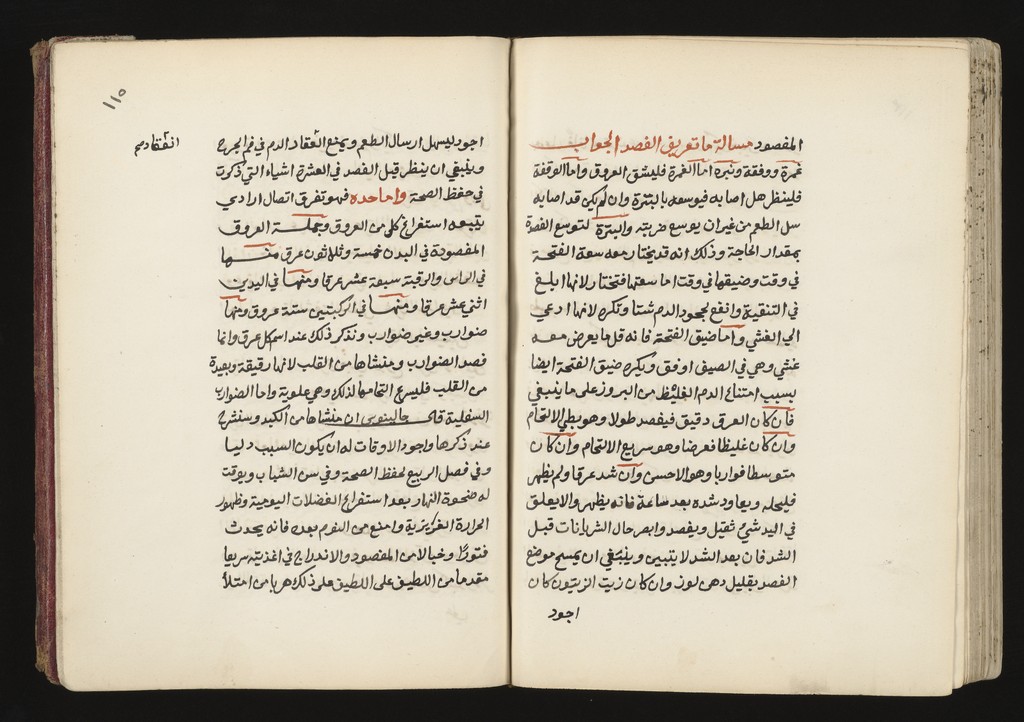 المفصود مسالة ما تعريف الفصد الجواب
غمزة ووقفة ونبرة اما الغمزة فليشق العروق واما الوقفة
فلينظر هل اصابه فيوسعه بالنترة وان لم يكن قد اصابه
سل الطعم من غير ان يوسع ضربته والنترة لتوسع الفصدة
بمقدار الحاجة وذلك انه قد يختار معه سعة الفتحة
في وقت وضيقها في وقت اما سعتها فتختار لانها ابلغ
في التنقية وانفع لجحود الدم شتا وتكره لانها ادعي
الي الغشي واما ضيق الفتحة فانه قل ما يعرض معه
غشي وهي في الصيف اوفق ويكره ضيق الفتحة ايضا
بسبب امتناع الدم الغليظ من البروز على ما ينبغي
فان كان العرق دقيق فيفصد طولا وهو بطي الالتحام
وان كان غليظا فعرضا وهو سريع الالتحام وان كان
متوسطا فواربا وهو الاحسن وان شد عرقا ولم يظهر
فليحله ويعاود شده بعد ساعة فانه يظهر والا يعلق
في اليد شي ثقيل ويفصد وابصر حال الشريانات قبل
الشد فان بعد الشد لا يتبين وينبغي ان يمسح موضع
الفصد بقليل دهن لوز وان كان زيت الزيتون كان
اجود
١١٥
اجود ليسهل ارسال الطعم ويمنع انعقاد الدم في فم الجرح
انعقاد صح
وينبغي ان ينظر قبل الفصد في العشرة اشياء التي ذكرت
في حفظ الصحة واما حده فهو تفرق اتصال ارادي
يتبعه استفراغ كلي من العروق وجملة العروق
المفصودة في البدن خمسة وثلاثون عرق منها
في الراس والرقبة سبعة عشر عرقا ومنها في اليدين
اثني عشر عرقا ومنها في الركبتين ستة عروق ومنها
ضوارب وغير ضوارب ونذكر ذلك عند اسم كل عرق وانما
فصد الضوارب ومنشاها من القلب لانها رقيقة وبعيدة
من القلب فليسرع التحامها لذلك وهي علوية واما الضوارب
السفلية قال جالينوس ان منشاها من الكبد وسنشرح
عند ذكرها واجود الاوقات له ان يكون السبب دليا
وفي فصل الربيع لحفظ الصحة وفي سن الشباب ويوقت
له ضحوة النهار بعد استفراغ الفضلات اليومية وظهور
الحرارة الغريزية وامنع من النوم بعده فانه يحدث
فتورًا وخبالا من المفصود والاندراج في اغذيته سريعا
مقدما من اللطيف على اللطيف على ذلك هربا من امتلأ